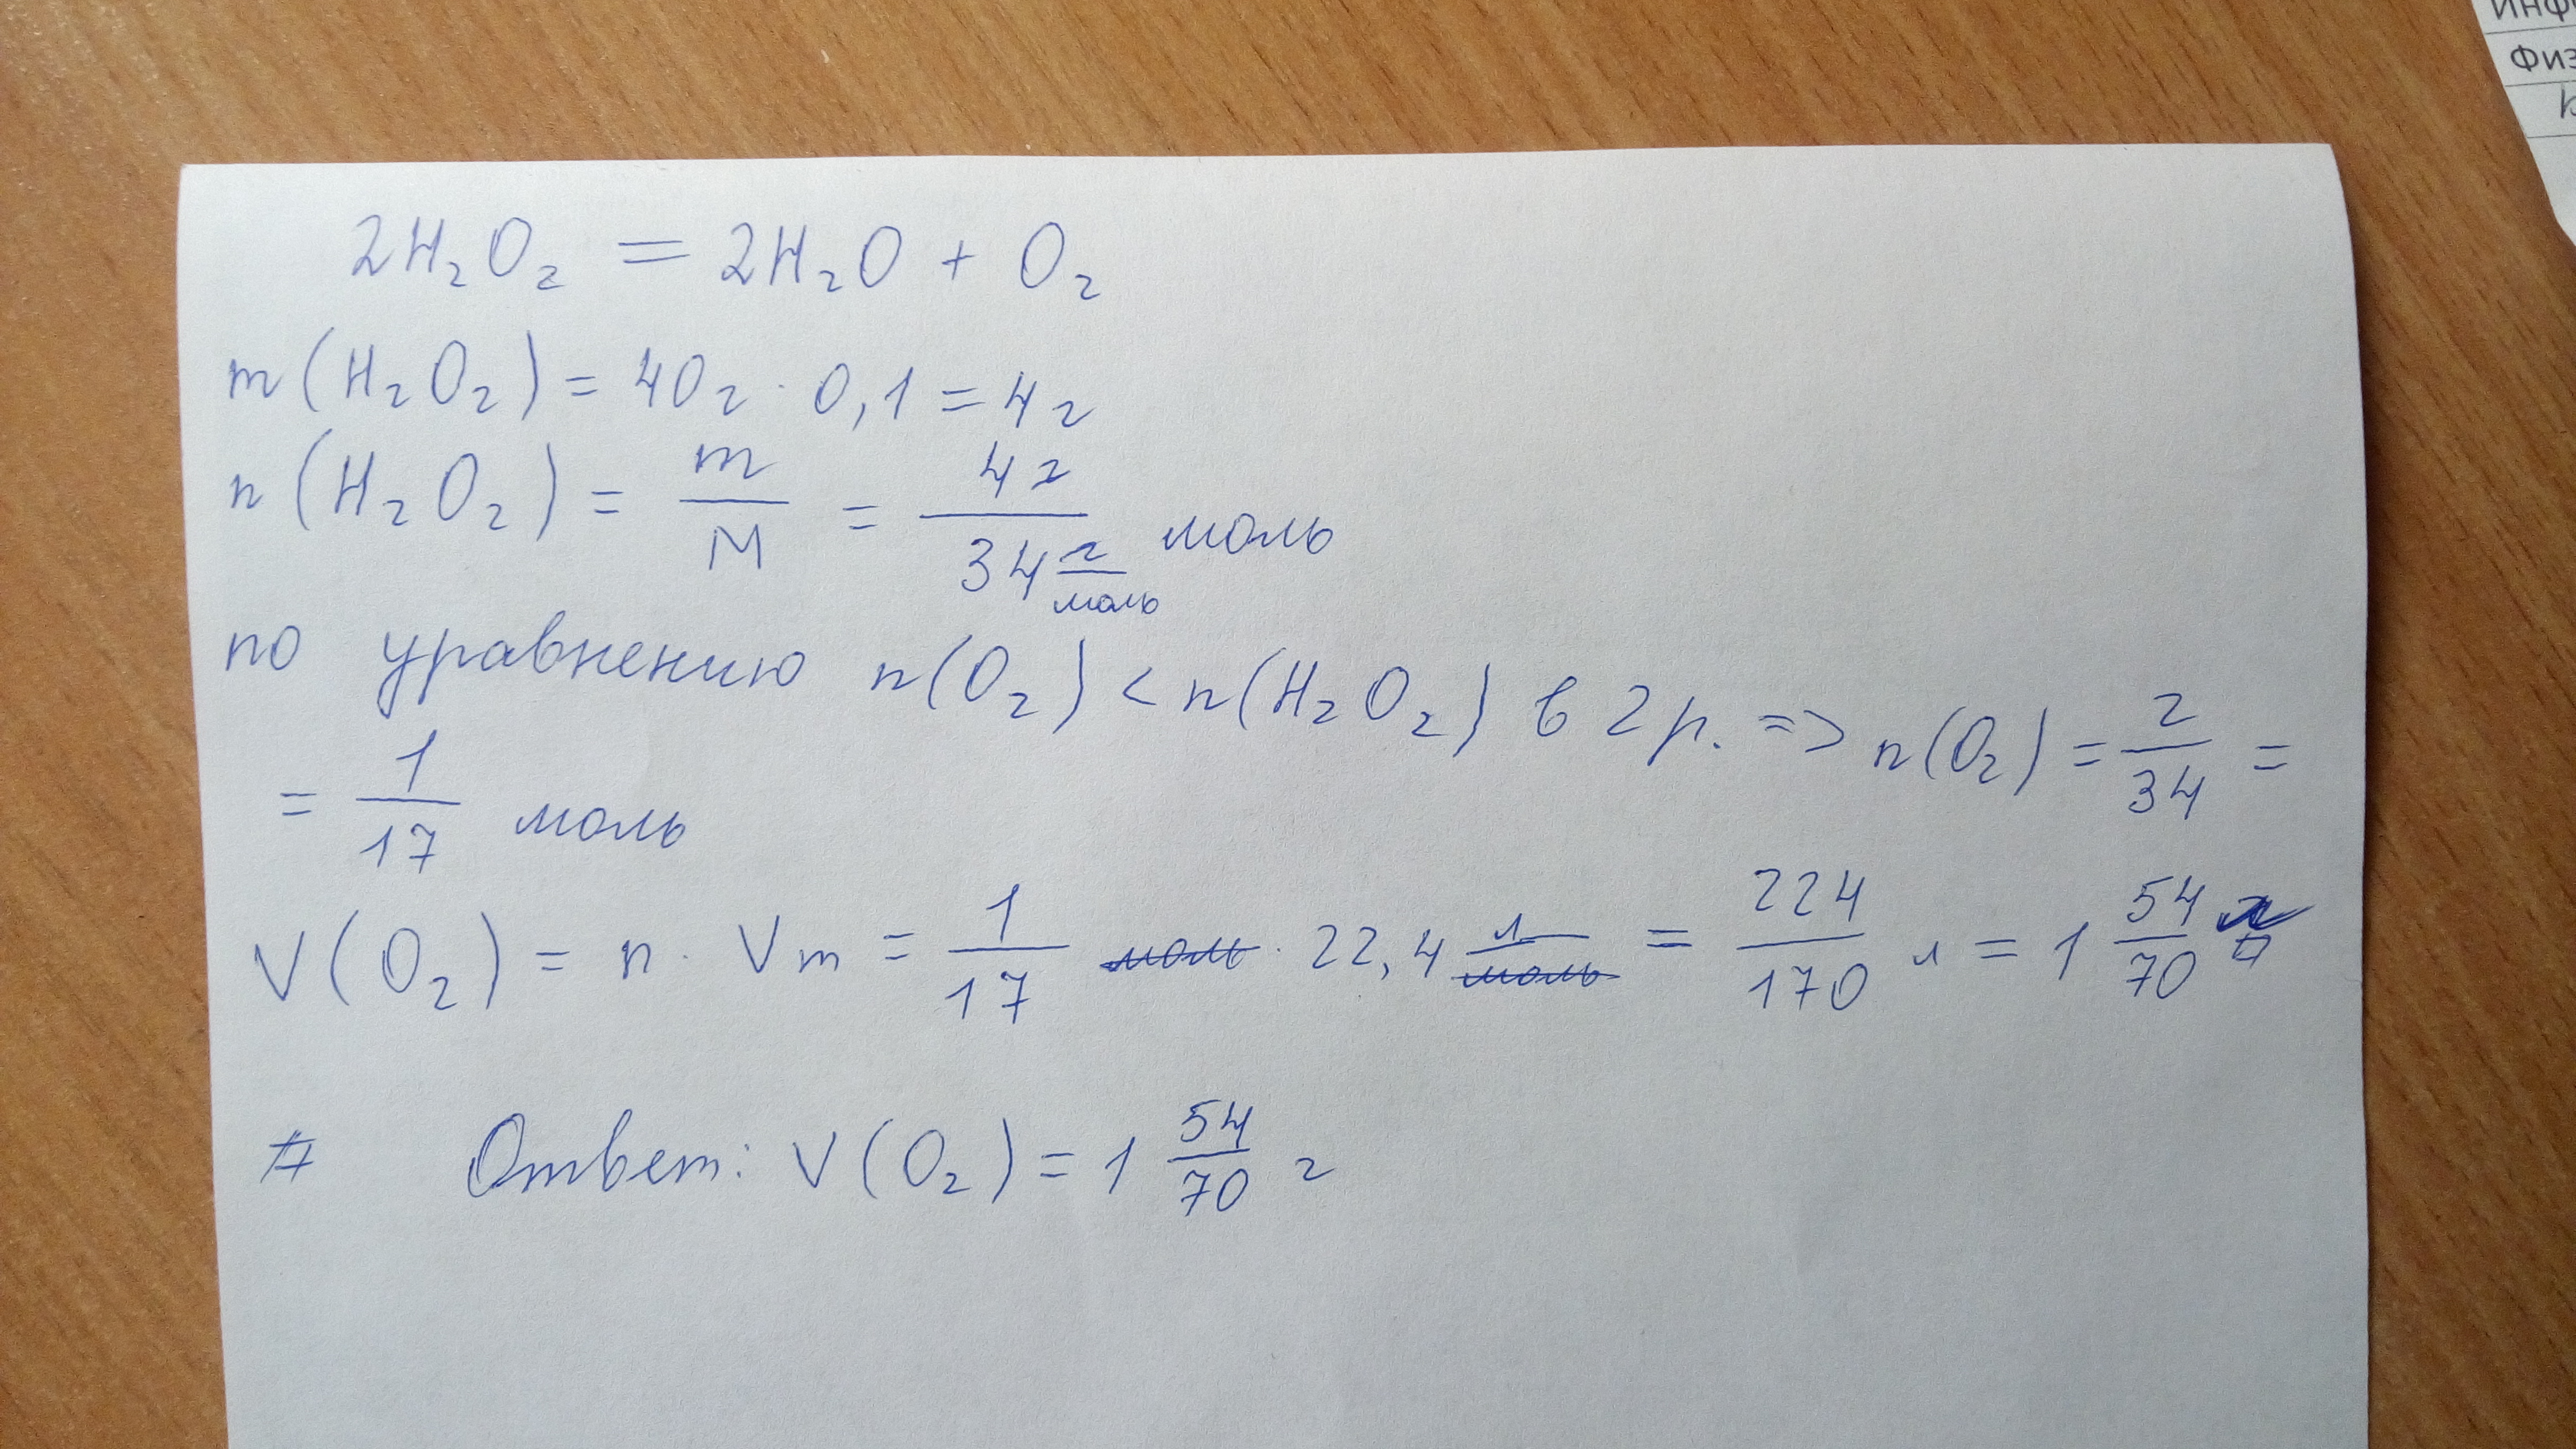 Инф
Физ
2H₂O₂ = 2H₂O + O₂
m(H₂O₂) = 40г · 0,1 = 4г
n(H₂O₂) = m/M = 4г/34 г/моль моль
по уравнению n(O₂) < n(H₂O₂) в 2 р. => n(O₂) = 2/34 =
= 1/17 моль
V(O₂) = n · Vm = 1/17 моль · 22,4 л/моль = 224/170 л = 1 54/70
Ответ: V(O₂) = 1 54/70 г